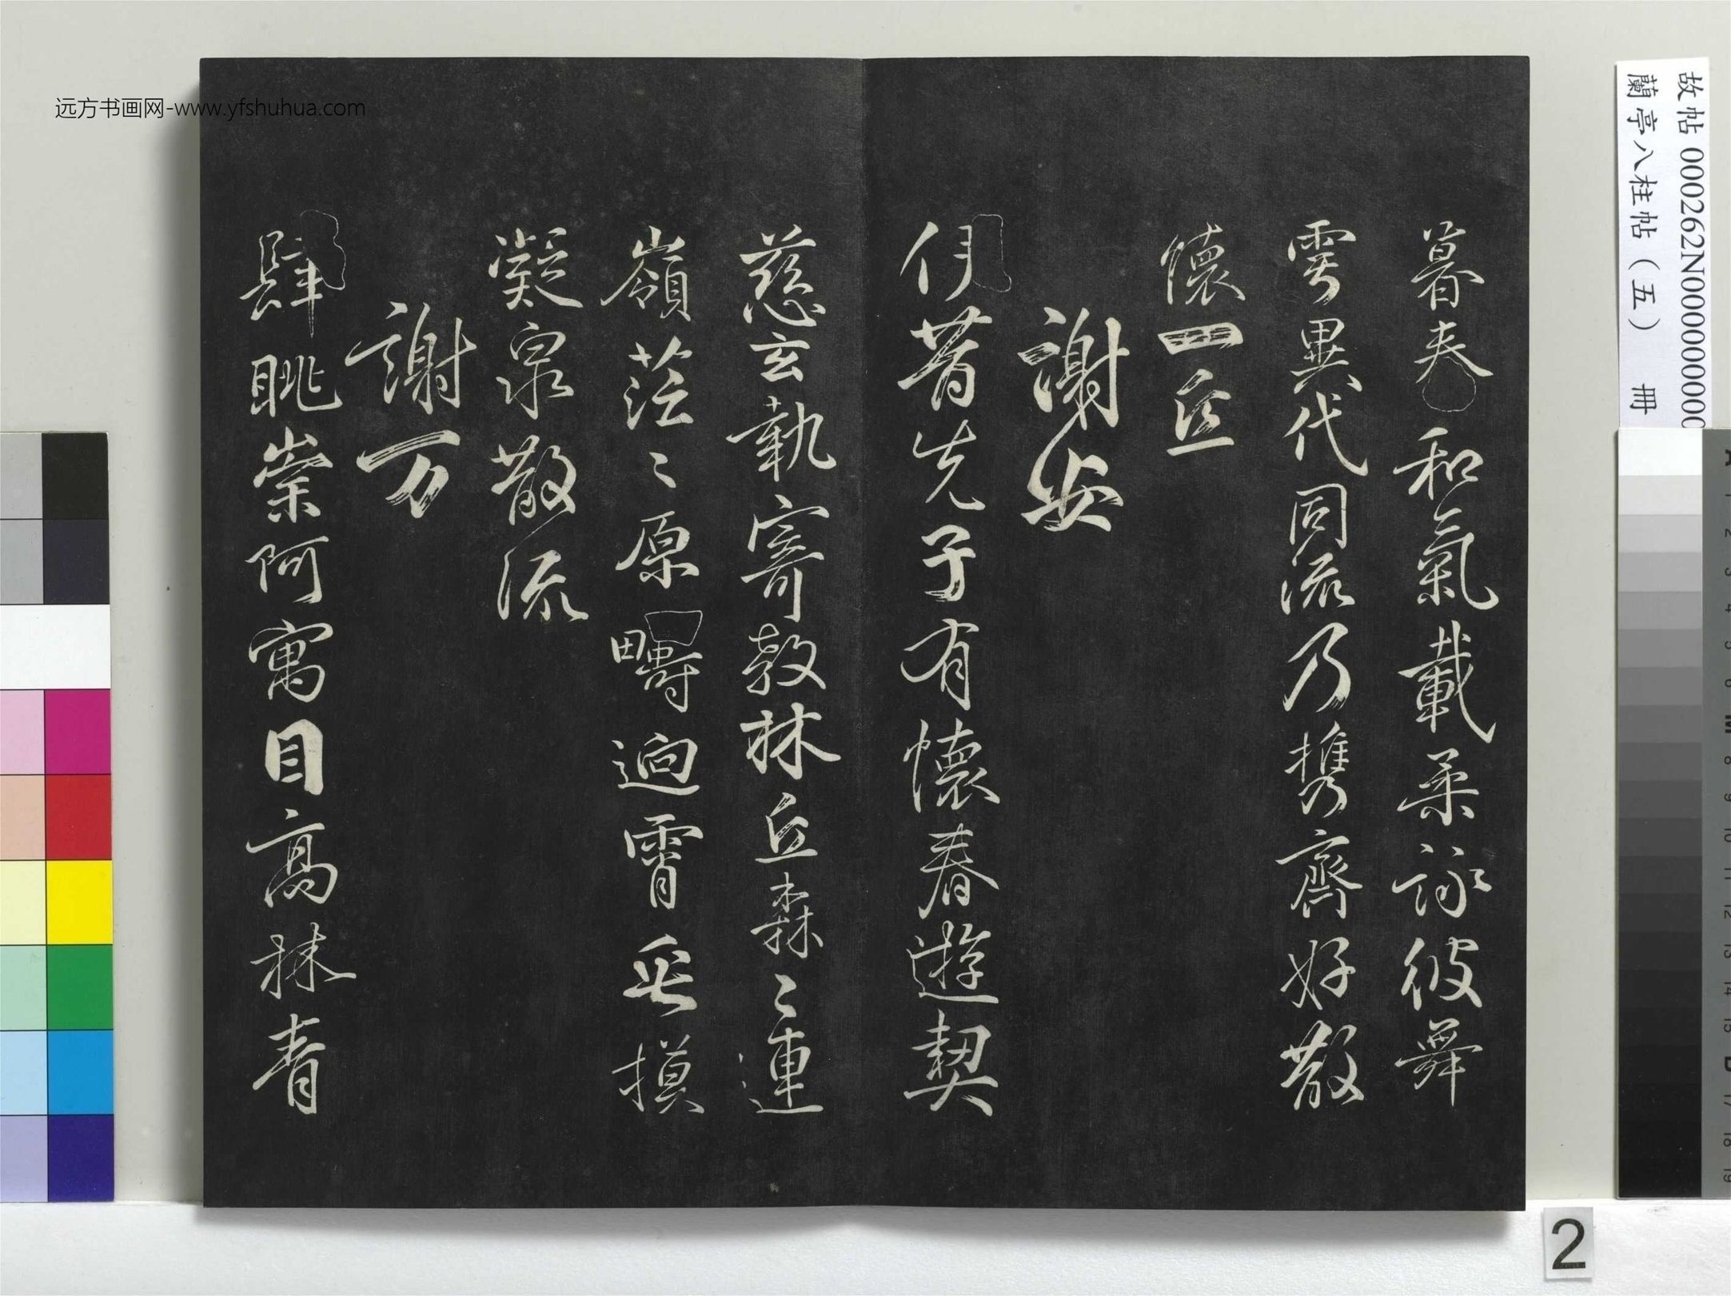 暮春和氣載柔詠彼舞
雩異代同流乃携齊好散
懷一丘
謝安
伊昔先子有懷春遊契
慈玄執寄敖林丘森〻連
嶺茫〻原疇迥霄垂
凝泉散流
謝万
肆眺崇阿寓目高林青
故帖 000262N000000000
蘭亭八柱帖（五） 冊
远方书画网-www.yfshuhua.com
2